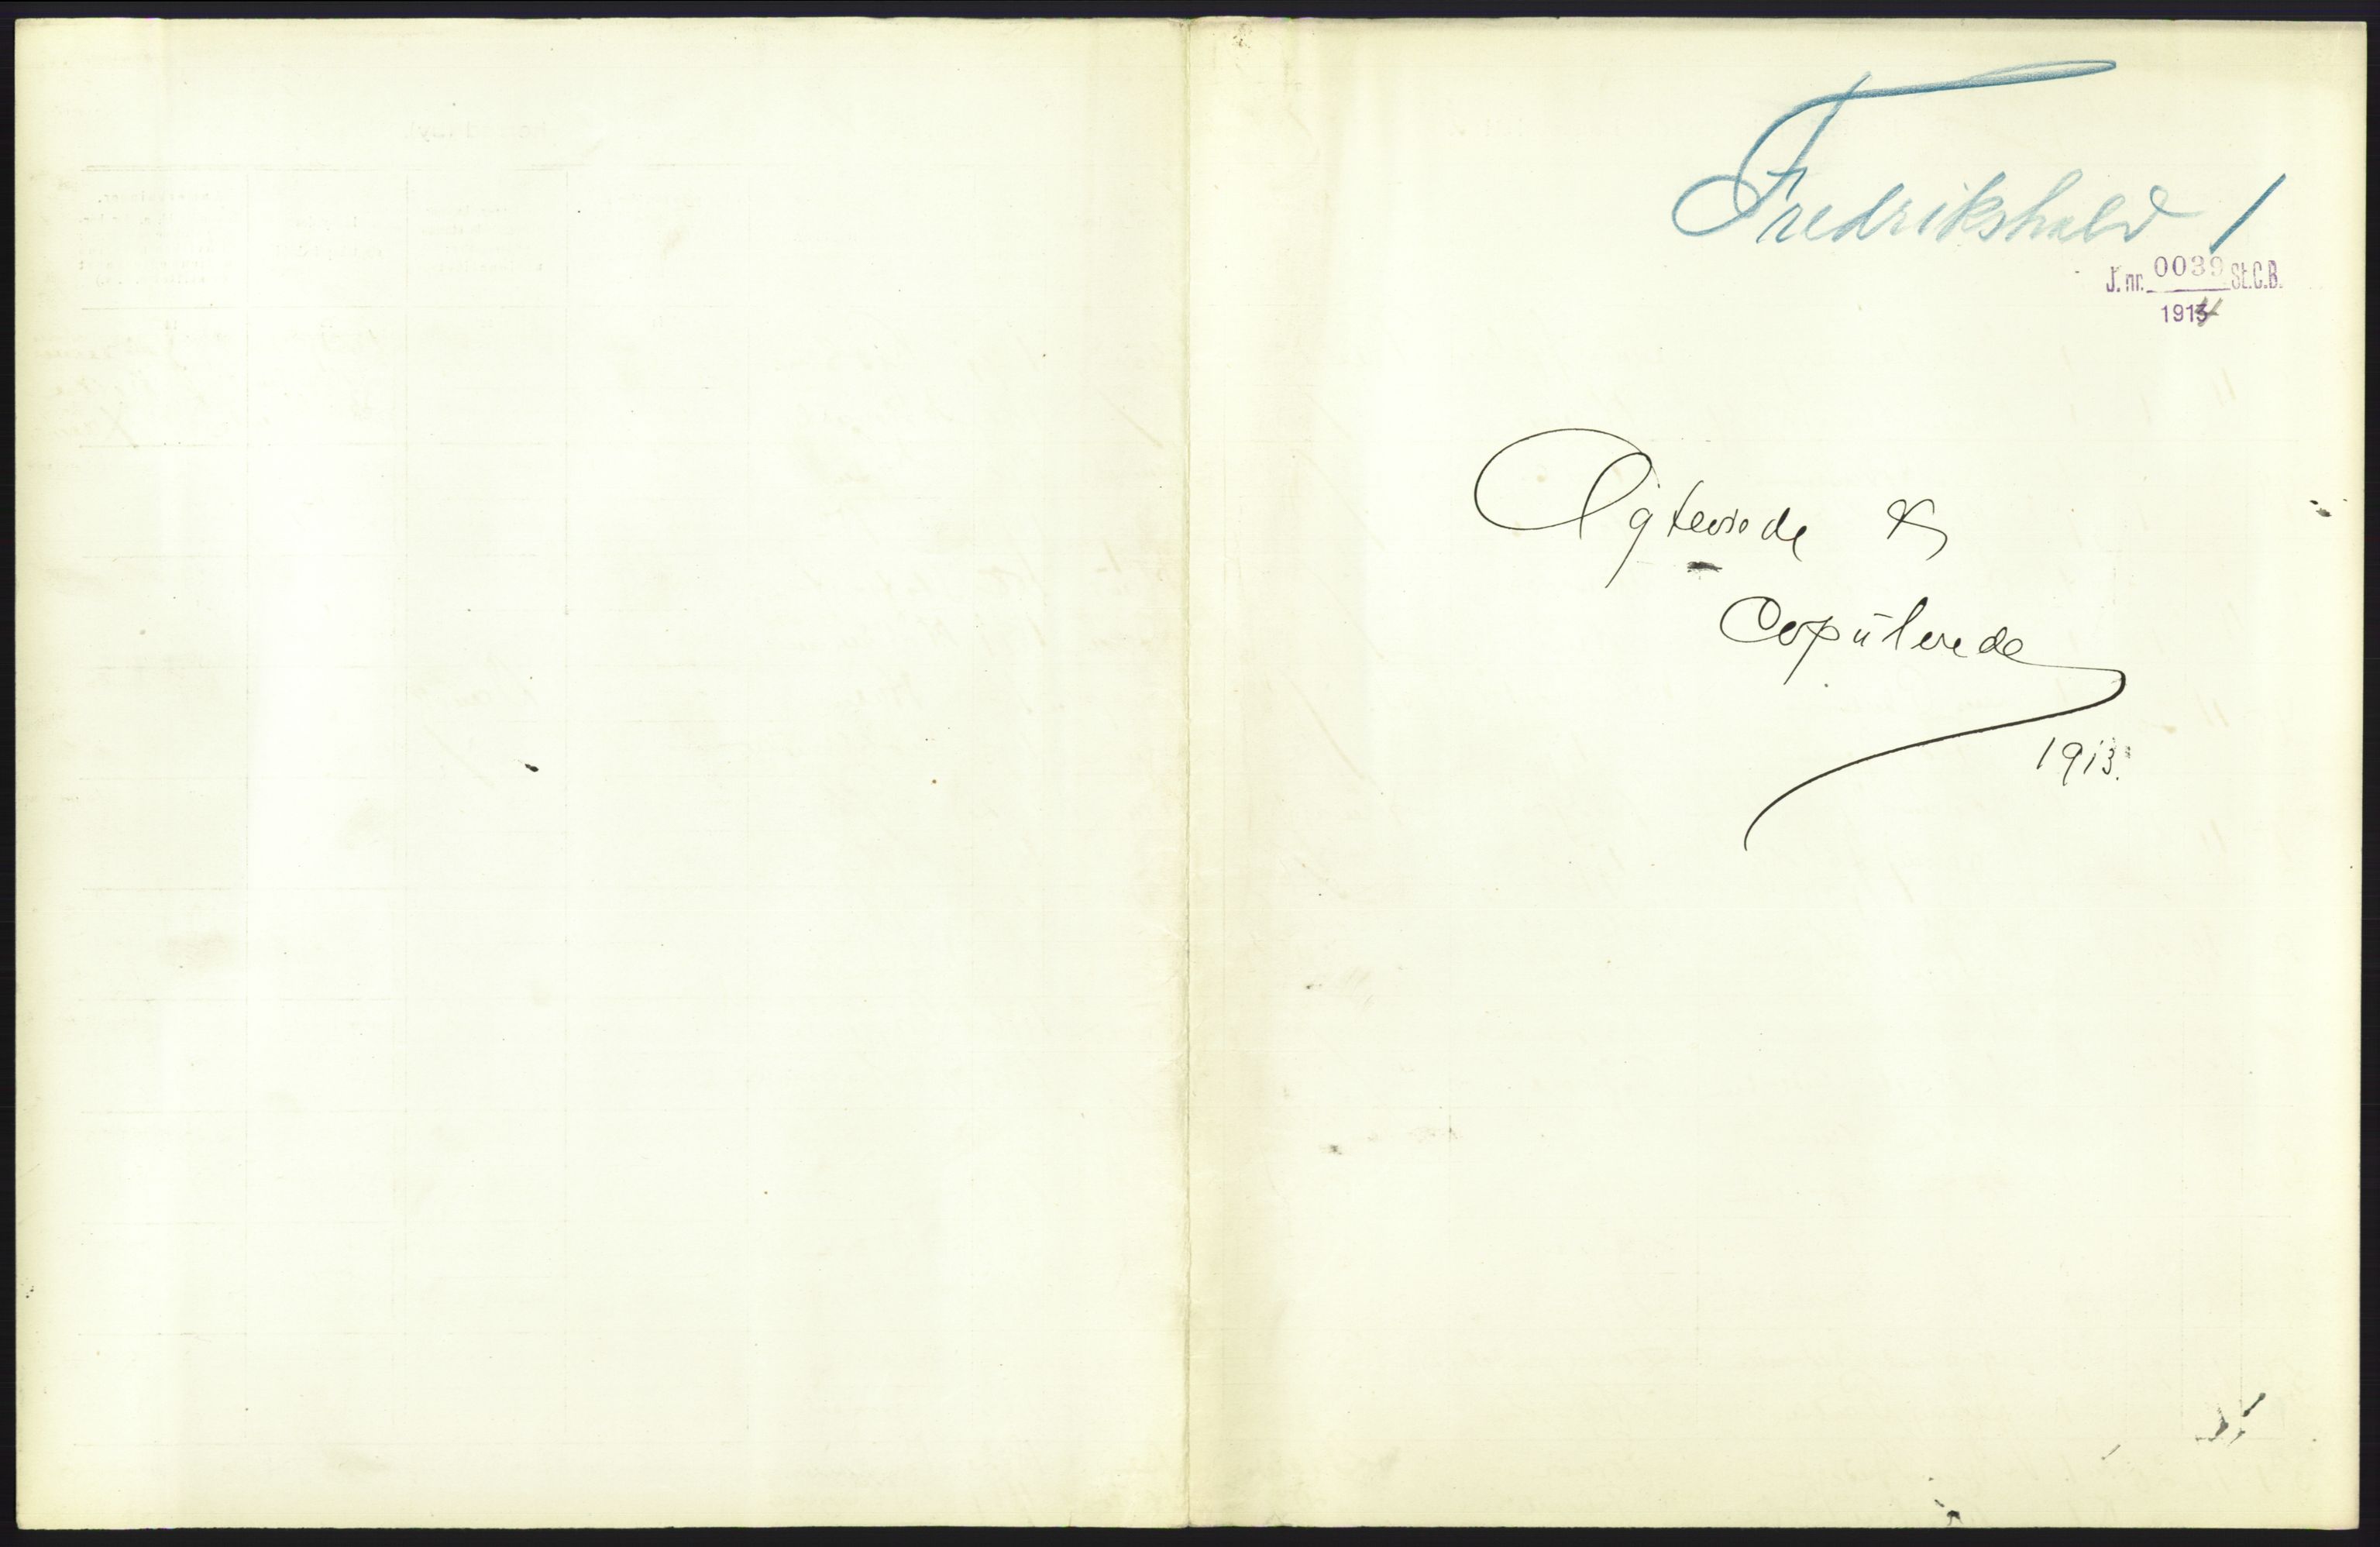 Fredrikshald 1
J. nr. 0039 St.C.B.
1914
Ægteviede &
Copülerede
1913.